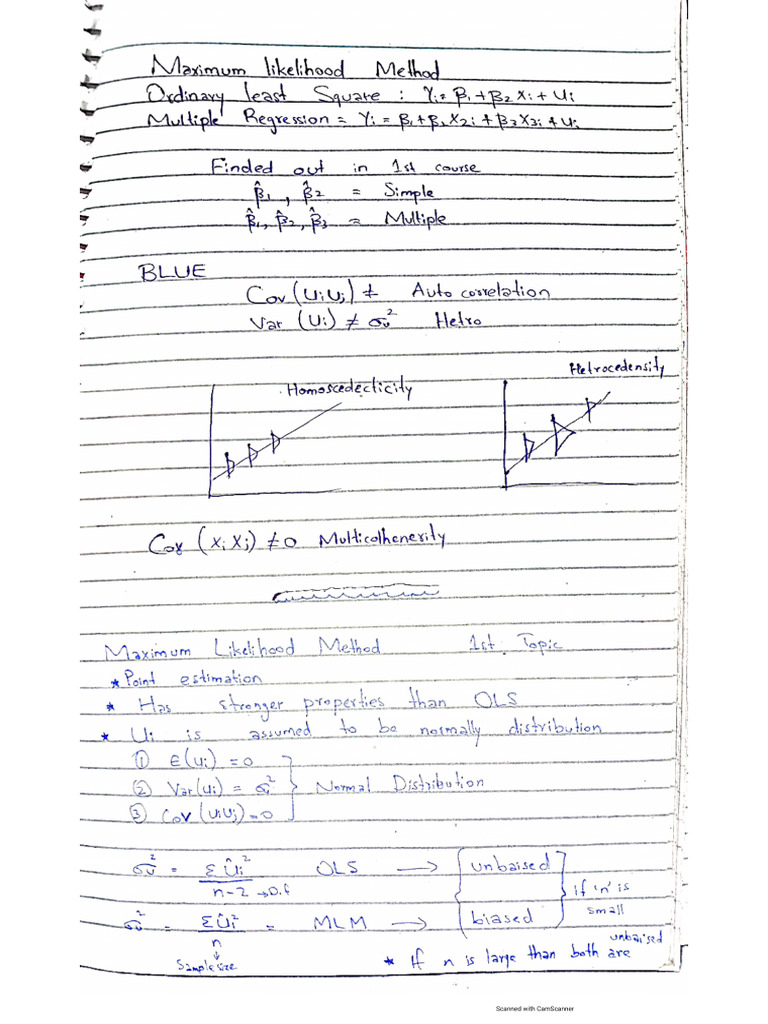 Maximum likelihood Method
Ordinary least Square : Yi = β1 + β2 Xi + Ui
Multiple Regression = Yi = β1 + β2 X2i + β3 X3i + Ui
Finded out in 1st course
β̂1 , β̂2 = Simple
β̂1, β̂2, β̂3 = Multiple
BLUE
Cov (UiUj) ≠ Auto correlation
Var (Ui) ≠ σu² Hetro
Homoscedecticity
Hetrocedensity
Cov (Xi Xj) ≠ 0 Multicolhenerity
Maximum Likelihood Method 1st Topic
* Point estimation
* Has stronger properties than OLS
* Ui is assumed to be normally distribution
① E(Ui) = 0
② Var(Ui) = σ² } Normal Distribution
③ Cov (UiUj) = 0
σu² = ΣÛi² / n-2 → D.f OLS → unbaised
if 'n' is small
σu² = ΣÛi² / n = MLM → biased
Sample size
* If n is large than both are unbaised
Scanned with CamScanner